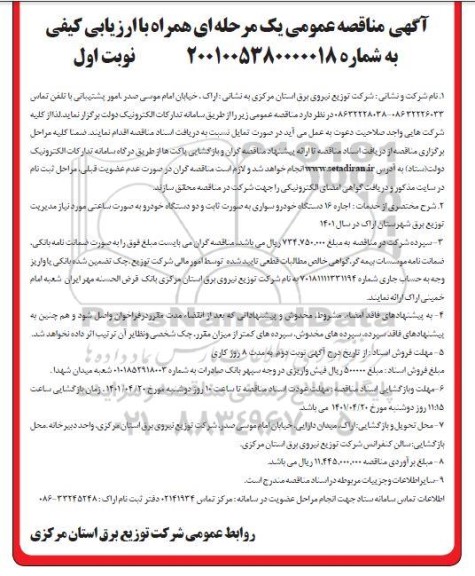 آگهی مناقصه عمومی یک مرحله ای همراه با ارزیابی کیفی
به شماره ۲۰۰۱۰۰۵۳۸۰۰۰۰۰۱۸ نوبت اول
۱. نام شرکت و نشانی : شرکت توزیع نیروی برق استان مرکزی به نشانی : اراک ، خیابان امام موسی صدر ،امور پشتیبانی با تلفن تماس
۰۸۶۳۲۲۲۸۰۳۸-۰۸۶۳۲۲۲۶۰۳۳ در نظر دارد مناقصه عمومی زیر را از طریق سامانه تدارکات الکترونیک دولت برگزار نماید.لذا از کلیه
شرکت هایی واجد صلاحیت دعوت به عمل می آید در صورت تمایل نسبت به دریافت اسناد مناقصه اقدام نمایند. ضمنا کلیه مراحل
برگزاری مناقصه از دریافت اسناد مناقصه تا ارائه پیشنهاد مناقصه گران و بازگشایی پاکت‌ها از طریق درگاه سامانه تدارکات الکترونیک
دولت(ستاد) به آدرس www.setadiran.ir انجام خواهد شد و لازم است مناقصه گران در صورت عدم عضویت قبلی، مراحل ثبت نام
در سایت مذکور و دریافت گواهی امضای الکترونیکی را جهت شرکت در مناقصه محقق سازند.
۲. شرح مختصری از خدمات : اجاره ۱۶ دستگاه خودرو سواری به صورت ثابت و دو دستگاه خودرو به صورت ساعتی مورد نیاز مدیریت
توزیع برق شهرستان اراک در سال ۱۴۰۱
۳- سپرده شرکت در مناقصه به مبلغ ۷۳۴,۷۵۰,۰۰۰ ریال می باشد. مناقصه گران می بایست مبلغ فوق را به صورت ضمانت نامه بانکی،
ضمانت نامه موسسات بیمه گر،گواهی خالص مطالبات قطعی تایید شده توسط امور مالی شرکت توزیع ،چک تضمین شده بانکی یا واریز
وجه به حساب جاری شماره ۷۰۱۸۱۱۱۱۳۳۱۱۹۴ به نام شرکت توزیع نیروی برق استان مرکزی بانک قرض الحسنه مهر ایران شعبه امام
خمینی اراک ارائه نمایند.
۴- به پیشنهادهای فاقد امضاء، مشروط، مخدوش و پیشنهاداتی که بعد از انقضاء مدت مقرر در فراخوان واصل شود و هم چنین به
پیشنهادهای فاقد سپرده، سپرده های مخدوش، سپرده های کمتر از میزان مقرر، چک شخصی و نظایر آن ترتیب اثر داده نخواهد شد.
۵- مهلت فروش اسناد : از تاریخ درج آگهی نوبت دوم به مدت ۸ روز کاری
مبلغ فروش اسناد : مبلغ ۵۰۰۰۰۰ ریال فیش واریزی در وجه سپهر بانک صادرات به شماره ۰۱۰۱۸۵۲۹۱۸۰۰۳ شعبه میدان شهدا .
۶- مهلت وبازگشایی اسناد مناقصه : مهلت عودت اسناد مناقصه تا ساعت ۱۰ روز دوشنبه مورخ ۱۴۰۱/۰۴/۲۰. زمان بازگشایی ساعت
۱۱:۱۵ روز دوشنبه مورخ ۱۴۰۱/۰۴/۲۰ می باشد.
۷- محل تحویل و بازگشایی: اراک، میدان دارایی، خیابان امام موسی صدر، شرکت توزیع نیروی برق استان مرکزی، واحد دبیرخانه محل
بازگشایی: سالن کنفرانس شرکت توزیع نیروی برق استان مرکزی.
۸- مبلغ برآوردی مناقصه ۱۱,۴۴۵,۰۰۰,۰۰۰ ریال می باشد.
۹- سایر اطلاعات و جزییات مربوطه در اسناد مناقصه مندرج است.
اطلاعات تماس سامانه ستاد جهت انجام مراحل عضویت در سامانه : مرکز تماس ۰۲۱۴۱۹۳۴ دفتر ثبت نام اراک : ۰۸۶-۳۳۲۴۵۲۴۸
روابط عمومی شرکت توزیع برق استان مرکزی
ParsNamadData
۰۲۱-۸۸۳۴۹۶۷۰-۵